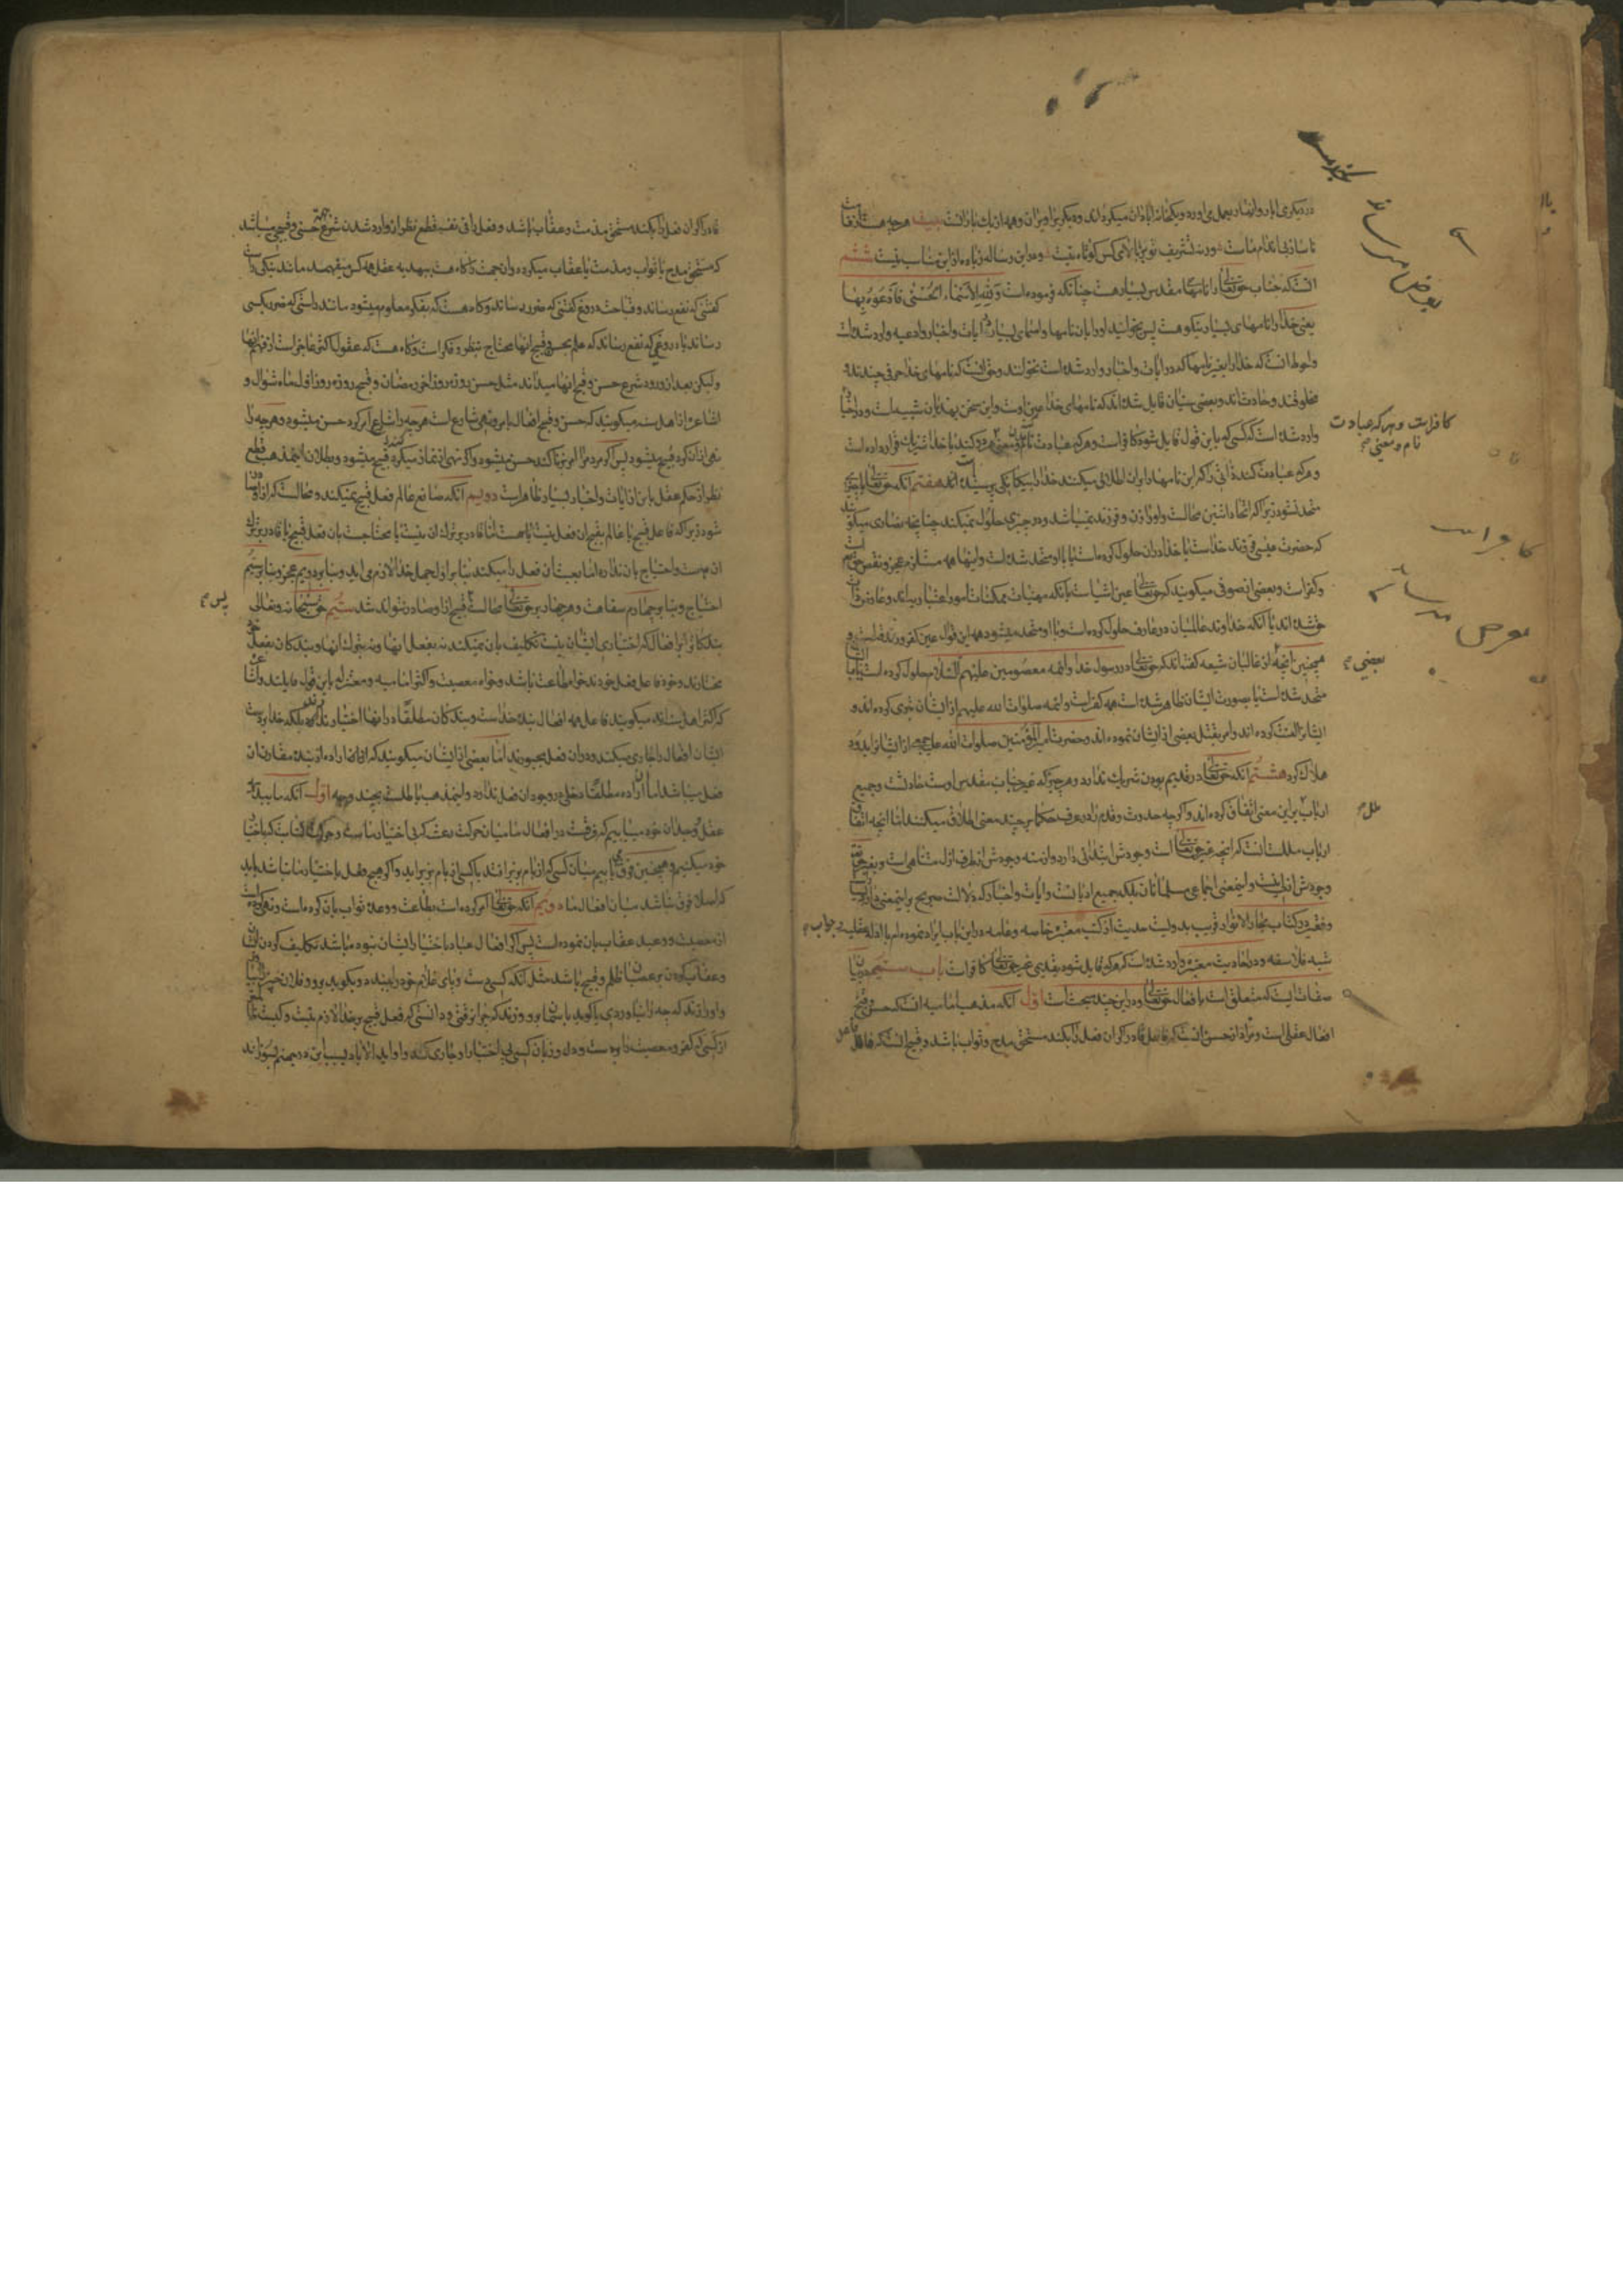 در دیگری انبار و انهار بعمل می آورده و یکخانه آبادان میکرده اند و دیگری را ویران و همه از یک باد است
ناساز بی اندام ماست ورنه تشریف تو بر بالای کس کوتاه نیست و در این رساله زیاده از این مناسب نیست ششم
آنستکه جناب حقتعالی را نامهای مقدس بسیار هست چنانکه فرموده است وَلِلّهِ الْاَسْمَاءُ الْحُسْنٰی فَادْعُوهُ بِهَا
یعنی خدا را نامهای بسیار نیکو هست پس بخوانید او را بان نامها و اسمای بسیار در آیات و اخبار و ادعیه وارد شده است
و احوط آنست که خدا را بغیر نامها که در آیات و اخبار وارد شده است نخوانند و حق آنست که نامهای خدا حرفی چندند و
مخلوقند و حادث اند و بعضی سنیان قایل شده اند که نامهای خدا عین اوست و این سخن بهذیان شبیه است و در اخبار
وارد شده است که کسی که باین قول قایل شود کافر است و هر که عبادت نام و معنی هر دو کند با خدا شریک قرار داده است
و هر که عبادت کند ذاتی را که این نامها را بر او اطلاق میکنند خدا را بیگانگی پرستیده است هفتم آنکه حقتعالی با چیزی
متحد نشود زیرا که اتحاد اثنین محالست و او را زن و فرزند نمیباشد و در چیزی حلول نمیکند چنانچه نصاری میگویند
که حضرت عیسی فرزند خداست یا خدا در آن حلول کرده است یا با او متحد شده است و اینها همه مستلزم عجز و نقص
و کفر است و بعضی از صوفی میگویند که حقتعالی عین اشیاست یا آنکه مهیات ممکنات امور اعتباریه اند و عارض ذات
حق شده اند یا آنکه خداوند عالمیان در عارف حلول کرده است و با او متحد میشود همه این قول عین کفر و زندقه است و
همچنین آنچه از غالیان شیعه گفته اند که حقتعالی در رسول خدا و ائمه معصومین علیهم السلام حلول کرده است یا با ایشان
متحد شده است یا بصورت ایشان ظاهر شده است همه کفر است و ائمه صلوات الله علیهم از ایشان تبری کرده اند و
ایشانرا لعنت کرده اند و امر بقتل بعضی از ایشان نموده اند و حضرت امیرالمؤمنین صلوات الله علیه جمعی از ایشانرا بدود
هلاک کرد هشتم آنکه حقتعالی در قدیم بودن شریک ندارد و هر چیز که غیر جناب مقدس اوست حادثست و جمیع
ارباب براین معنی اتفاق کرده اند و اگر چه حدوث و قدم را در عرف حکما بر چند معنی اطلاق میکنند اما آنچه اتفاقی
ارباب مللست آنست که آنچه غیر حقتعالی است وجودش ابتدائی دارد و ازمنه وجودش از طرف ازل متناهی است و بغیر حقتعالی
وجودش ازلی نیست و اینمعنی اجماعی مسلمانان بلکه جمیع ادیانست و آیات و اخبار که دلالت صریح بر اینمعنی دارد بسیار است
و فقیر در کتاب بحار الانوار قریب بدویست حدیث از کتب معتبره خاصه و عامه در این باب ایراد نموده ام با ادله عقلیه و جواب
شبه فلاسفه و در احادیث معتبره وارد شده است که هر که قایل شود بقدیمی غیر حقتعالی کافر است باب سیم در بیان
صفات است که متعلق است بافعال حقتعالی و در این چند بحث است اول آنکه مذهب امامیه آنست که حسن و قبح
افعال عقلی است و مراد از حسن آنستکه فاعل قادر اگر آن فعل را بکند مستحق مدح و ثواب باشد و قبیح آنستکه فاعل
کافر است و هر که عبادت
نام و معنی
بعضی
ملل
قادر اگر آن فعل را بکند مستحق مذمت و عقاب باشد و فعل را فی نفسه قطع نظر از وارد شدن شرع جهة حسنی و قبحی میباشد
که مستحق مدح یا ثواب و مذمت یا عقاب میگردد و آن جهت را گاه هست بدیهیه عقل همه کس میفهمد مانند نیکی راست
گفتنی که نفع رساند و قباحت دروغ گفتنی که ضرر رساند و گاه هست که بفکر معلوم میشود مانند راستی که ضرر بکسی
رساند یا دروغی که نفع رساند که علم بحسن و قبح آنها محتاج بنظر و فکر است و گاه هست که عقول اکثر عاجز است از فهم آنها
ولیکن بعد از ورود شرع حسن و قبح آنها میدانند مثل حسن روزه روز آخر رمضان و قبح روزه روز اول ماه شوال و
اشاعره از اهل سنت میگویند که حسن و قبح افعال بامر و نهی شارع است هر چه را شارع امر کرد حسن میشود و هر چه را
نهی از آن کرد قبیح میشود پس اگر مردم را امر بزنا کند حسن میشود و اگر نهی از نماز میکرد قبیح میشود و بطلان اینمذهب قطع
نظر از حکم عقل باین از آیات و اخبار بسیار ظاهر است دویم آنکه صانع عالم فعل قبیح نمیکند و محالست که از او صادر
شود زیرا که فاعل قبیح یا عالم بقبح آن فعل نیست یا هست اما قادر بر ترک آن نیست یا محتاجست بان فعل قبیح یا قادر بر ترک
آن هست و احتیاج بان ندارد اما بعبث آن فعل را میکند بنا بر اول جهل خدا لازم می آید و بنا بر دویم عجز و بنا بر سیم
احتیاج و بنا بر چهارم سفاهت و هر چهار بر حقتعالی محالست پس قبیح از او صادر نتواند شد سیم حق سبحانه و تعالی
بندگانرا بر افعالی که اختیاری ایشان نیست تکلیف بان نمیکند نه بفعل آنها و نه بترک آنها و بندگان بفعل خود
مختارند و خود فاعل فعل خودند خواه طاعت باشد و خواه معصیت و اکثر امامیه و معتزله باین قول قایلند و اشاعره
که اکثر اهل سنتند میگویند فاعل همه افعال بنده خداست و بندگان مطلقا در آنها اختیار ندارند بلکه خدا بر دست
ایشان افعال را جاری میکند و در آن فعل مجبورند اما بعضی از ایشان میگویند که اراده از بنده مقارن آن
فعل میباشد اما آن اراده مطلقا دخلی در وجود آن فعل ندارد و اینمذهب باطلست بچند وجه اول آنکه ما ببدیهه
عقل و وجدان خود مییابیم که فرقست در افعال ما میان حرکت رعشه که بی اختیار ماست و حرکت کتابت که باختیار
خود میکنیم و همچنین فرق مییابیم میان کسی که از بام بزیر افتد یا کسی از بام بزیر آید و اگر هیچ فعل باختیار ما نباشد باید
که اصلا فرق نباشد میان افعال ما دویم آنکه حقتعالی امر کرده است بطاعت و وعده ثواب بان کرده است و نهی کرده است
از معصیت و وعید عقاب بان نموده است پس اگر افعال عباد باختیار ایشان نبوده باشد تکلیف کردن ایشان
و عقاب کردن بر عصیان ظلم و قبیح باشد مثل آنکه کسی دست و پای غلام خود را ببندد و بگوید برو و فلان چیز را بیار
و او را زند که چه را نیاوردی یا گوید باسمان برو و زند که چرا نرفتی و دانستی که فعل قبیح بر خدا لازم نیست و کیست ظالمتر
از کسی که کفر و معصیت را بر دست و دل و زبان کسی بی اختیار او جاری کند و او را ابد الاباد بسبب این در جهنم بسوزاند
پس